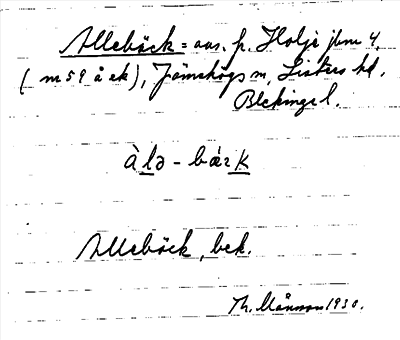 Alleböck = avs. fr. Holje jbm 4,
(m 59 å ek), Jämshögs sn, Listers hd,
Blekinge l.
àlə - bǽrk
Alleböck, bek.
Th. Månsson 1930.